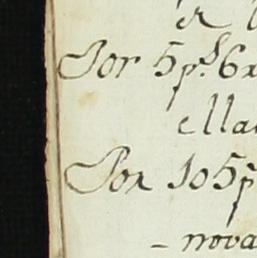 Por 5 p.s 6 x
ella
Por 105 p
nova